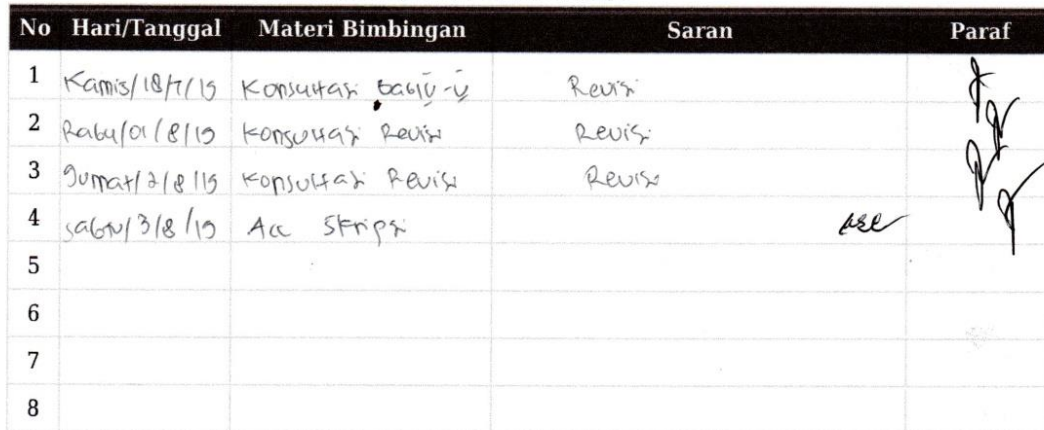 No Hari/Tanggal Materi Bimbingan Saran Paraf
1 Kamis/18/7/19 Konsultasi bab IV-V Revisi
2 Rabu/01/8/19 Konsultasi Revisi Revisi
3 Jumat/2/8/19 Konsultasi Revisi Revisi
4 Sabtu/3/8/19 Acc Skripsi acc
5
6
7
8